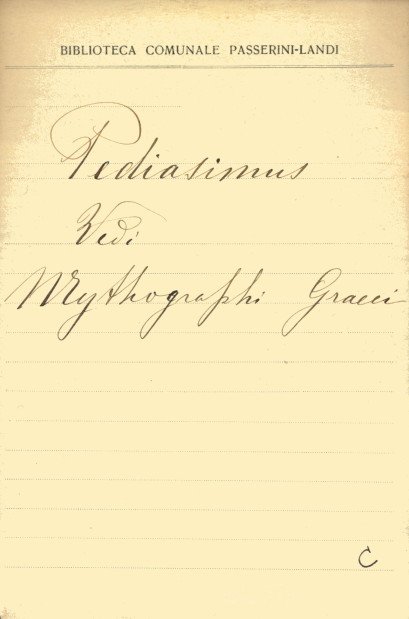 BIBLIOTECA COMUNALE PASSERINI-LANDI
Pediasimus
Vedi
Mythographi Graeci
C